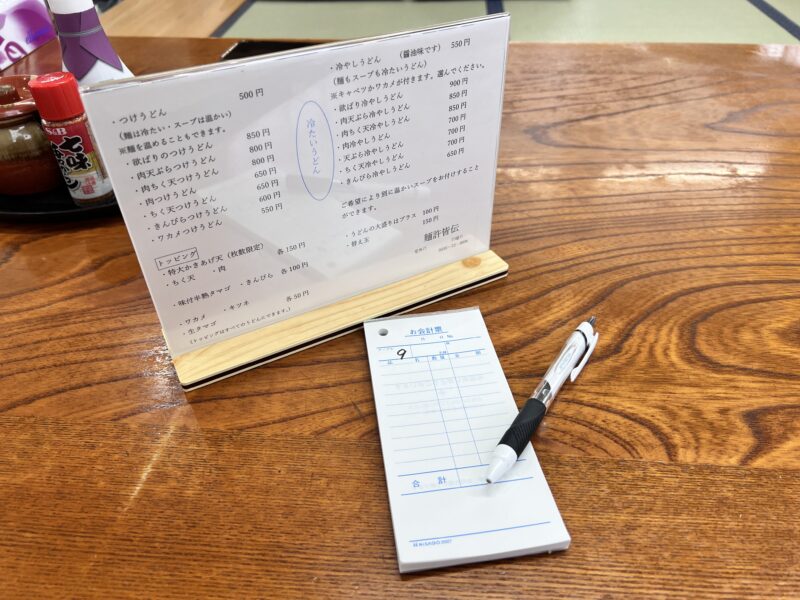 ・つけうどん 500円
(麺は冷たい・スープは温かい)
※麺を温めることもできます。
・欲ばりのつけうどん 850円
・肉天ぷらつけうどん 800円
・肉ちく天つけうどん 800円
・肉つけうどん 650円
・ちく天つけうどん 650円
・きんぴらつけうどん 600円
・ワカメつけうどん 550円
トッピング
・特大かきあげ天(枚数限定) 各150円
・ちく天 ・肉
・味付半熟タマゴ ・きんぴら 各100円
・ワカメ ・キツネ
・生タマゴ 各50円
(トッピングはすべてのうどんにできます。)
冷たいうどん
・冷やしうどん (醤油味です) 550円
(麺もスープも冷たいうどん)
※キャベツかワカメが付きます。選んでください。
・欲ばり冷やしうどん 900円
・肉天ぷら冷やしうどん 850円
・肉ちく天冷やしうどん 850円
・肉冷やしうどん 700円
・天ぷら冷やしうどん 700円
・ちく天冷やしうどん 700円
・きんぴら冷やしうどん 650円
ご希望により別に温かいスープをお付けすること
ができます。
・うどんの大盛りはプラス 100円
・替え玉 150円
麺許皆伝
S&B
七味
お会計票
月 日 No.
9
品 名 数量 金 額
合 計